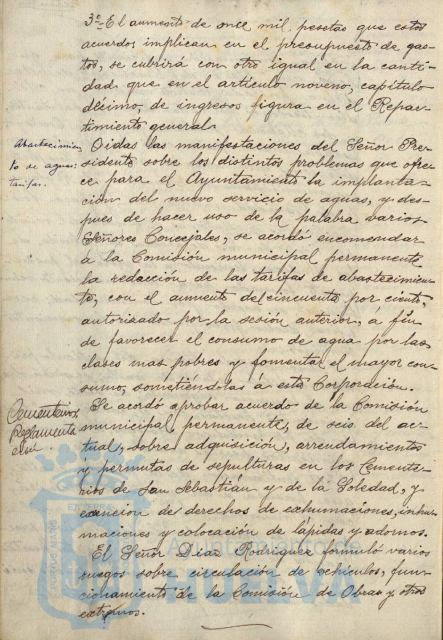 3º- El aumento de once mil pesetas que estos
acuerdos implican en el presupuesto de gas-
tos, se cubrirá con otro igual en la canti-
dad que en el artículo noveno, capítulo
décimo, de ingresos figura en el Repar-
timiento general.
Abastecimien-
to de aguas:
tarifas.
Oidas las manifestaciones del Señor Pre-
sidente sobre los distintos problemas que ofre-
ce para el Ayuntamiento la implanta-
ción del nuevo servicio de aguas, y des-
pues de hacer uso de la palabra varios
Señores Concejales, se acordó encomendar
a la Comisión municipal permanente
la redacción de las tarifas de abastecimien-
to, con el aumento del cincuenta por ciento,
autorizado por la sesión anterior, á fin
de favorecer el consumo de agua por las
clases mas pobres y fomentar el mayor con-
sumo, sometiéndolas a esta Corporación.
Cementerios
Reglamenta
ción
Se acordó aprobar acuerdo de la Comisión
municipal permanente, de seis del ac-
tual, sobre adquisición, arrendamientos
y permutas de sepulturas en los Cemente-
rios de San Sebastián y de la Soledad, y
exención de derechos de exhumaciones, inhu-
maciones y colocación de lápidas y adornos.
El Señor Díaz Rodriguez formuló varios
ruegos sobre circulación de vehículos, fun-
cionamiento de la Comisión de Obras y otros
extremos.